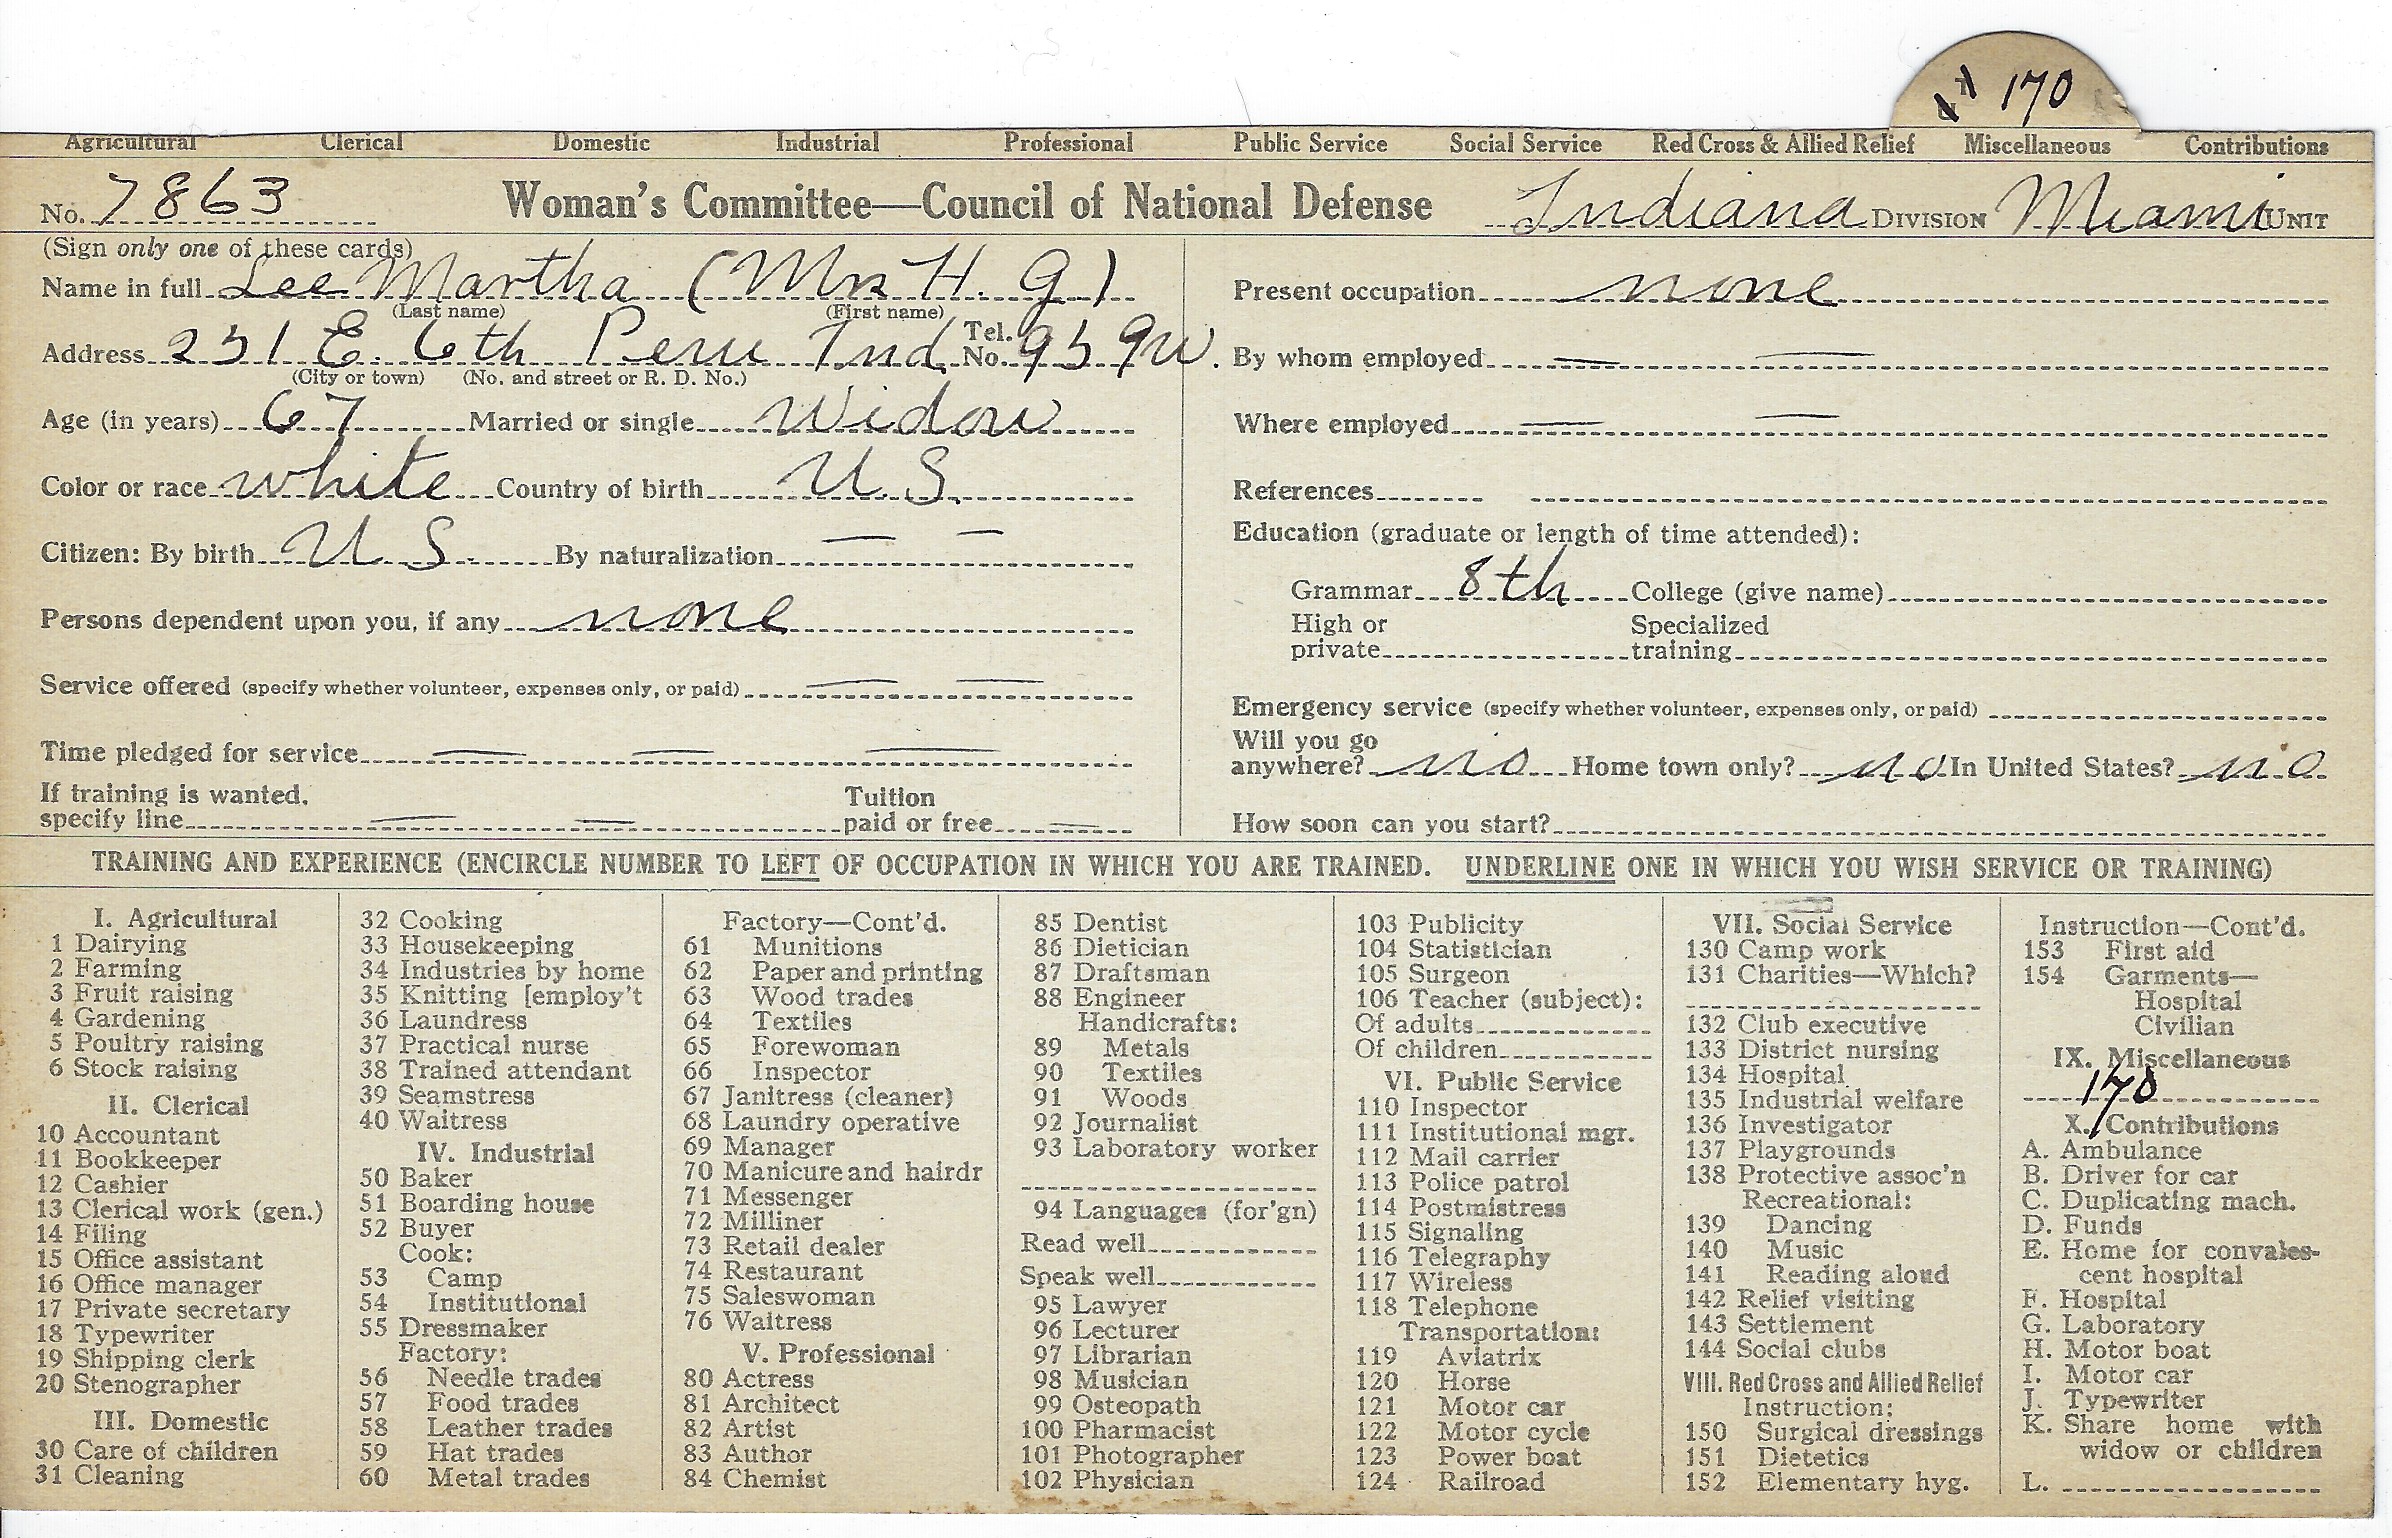 170
Agricultural Clerical Domestic Industrial Professional Public Service Social Service Red Cross & Allied Relief Miscellaneous Contributions
No. 7863 Woman's Committee—Council of National Defense Indiana DIVISION Miami UNIT
(Sign only one of these cards)
Name in full Lee Martha (Mrs H. G)
(Last name) (First name)
Address 251 E. 6th Peru Ind. Tel. No. 959W.
(City or town) (No. and street or R. D. No.)
Age (in years) 67 Married or single Widow
Color or race white Country of birth U.S.
Citizen: By birth U S. By naturalization — —
Persons dependent upon you, if any none
Service offered (specify whether volunteer, expenses only, or paid) — —
Time pledged for service — — —
If training is wanted, specify line — — Tuition paid or free —
Present occupation none
By whom employed — —
Where employed — —
References
Education (graduate or length of time attended):
Grammar 8th College (give name)
High or private Specialized training
Emergency service (specify whether volunteer, expenses only, or paid)
Will you go anywhere? no Home town only? no In United States? no
How soon can you start?
TRAINING AND EXPERIENCE (ENCIRCLE NUMBER TO LEFT OF OCCUPATION IN WHICH YOU ARE TRAINED. UNDERLINE ONE IN WHICH YOU WISH SERVICE OR TRAINING)
I. Agricultural
1 Dairying
2 Farming
3 Fruit raising
4 Gardening
5 Poultry raising
6 Stock raising
II. Clerical
10 Accountant
11 Bookkeeper
12 Cashier
13 Clerical work (gen.)
14 Filing
15 Office assistant
16 Office manager
17 Private secretary
18 Typewriter
19 Shipping clerk
20 Stenographer
III. Domestic
30 Care of children
31 Cleaning
32 Cooking
33 Housekeeping
34 Industries by home
35 Knitting [employ't
36 Laundress
37 Practical nurse
38 Trained attendant
39 Seamstress
40 Waitress
IV. Industrial
50 Baker
51 Boarding house
52 Buyer
Cook:
53 Camp
54 Institutional
55 Dressmaker
Factory:
56 Needle trades
57 Food trades
58 Leather trades
59 Hat trades
60 Metal trades
Factory—Cont'd.
61 Munitions
62 Paper and printing
63 Wood trades
64 Textiles
65 Forewoman
66 Inspector
67 Janitress (cleaner)
68 Laundry operative
69 Manager
70 Manicure and hairdr
71 Messenger
72 Milliner
73 Retail dealer
74 Restaurant
75 Saleswoman
76 Waitress
V. Professional
80 Actress
81 Architect
82 Artist
83 Author
84 Chemist
85 Dentist
86 Dietician
87 Draftsman
88 Engineer
Handicrafts:
89 Metals
90 Textiles
91 Woods
92 Journalist
93 Laboratory worker
94 Languages (for'gn)
Read well
Speak well
95 Lawyer
96 Lecturer
97 Librarian
98 Musician
99 Osteopath
100 Pharmacist
101 Photographer
102 Physician
103 Publicity
104 Statistician
105 Surgeon
106 Teacher (subject):
Of adults
Of children
VI. Public Service
110 Inspector
111 Institutional mgr.
112 Mail carrier
113 Police patrol
114 Postmistress
115 Signaling
116 Telegraphy
117 Wireless
118 Telephone
Transportation:
119 Aviatrix
120 Horse
121 Motor car
122 Motor cycle
123 Power boat
124 Railroad
VII. Social Service
130 Camp work
131 Charities—Which?
132 Club executive
133 District nursing
134 Hospital
135 Industrial welfare
136 Investigator
137 Playgrounds
138 Protective assoc'n
Recreational:
139 Dancing
140 Music
141 Reading aloud
142 Relief visiting
143 Settlement
144 Social clubs
VIII. Red Cross and Allied Relief
Instruction:
150 Surgical dressings
151 Dietetics
152 Elementary hyg.
Instruction—Cont'd.
153 First aid
154 Garments—
Hospital
Civilian
IX. Miscellaneous
170
X. Contributions
A. Ambulance
B. Driver for car
C. Duplicating mach.
D. Funds
E. Home for convales-
cent hospital
F. Hospital
G. Laboratory
H. Motor boat
I. Motor car
J. Typewriter
K. Share home with
widow or children
L.